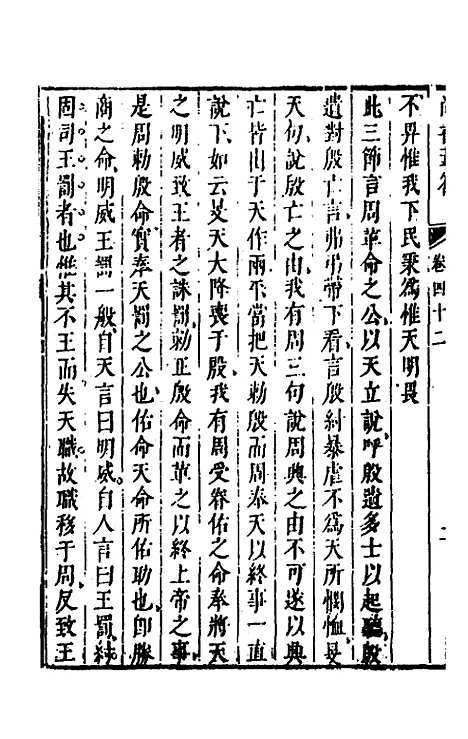 卷四十二
不畀惟我下民秉爲惟天明畏
此三節言周革命之公以天立說呼殷遺多士以起聽殷
遺對殷亡言弗弔帶下看言殷紂暴虐不爲天所憫恤旻
天句說殷亡之由我有周三句說周興之由不可遂以興
亡皆由于天作兩平當把天勅殷而周奉天以終事一直
說下如云旻天大降喪于殷我有周受眷佑之命奉將天
之明威致王者之誅罰勅正殷命而革之以終上帝之事
是周勅殷命實奉天罰之公也佑命天命所佑助也卽勝
商之命明威王罰一般自天言曰明威自人言曰王罰紂
固司王罰者也惟其不王而失天職故職移于周反致王